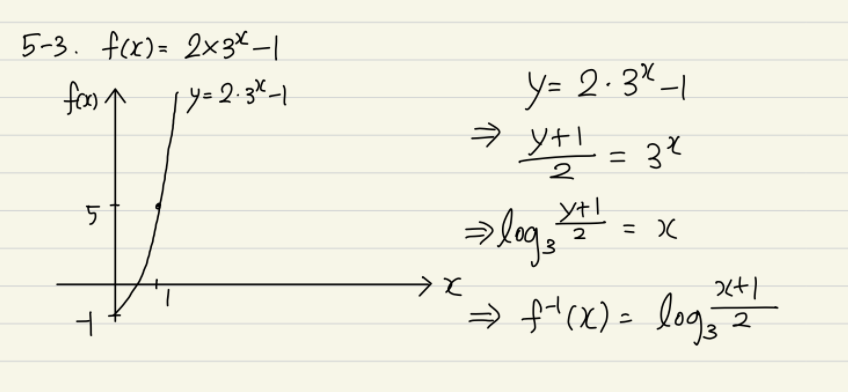 5-3. f(x) = 2×3^x -1
f(x)
y = 2·3^x -1
5
-1
1
x
y = 2·3^x -1
⇒ (y+1)/2 = 3^x
⇒ log₃ (y+1)/2 = x
⇒ f⁻¹(x) = log₃ (x+1)/2